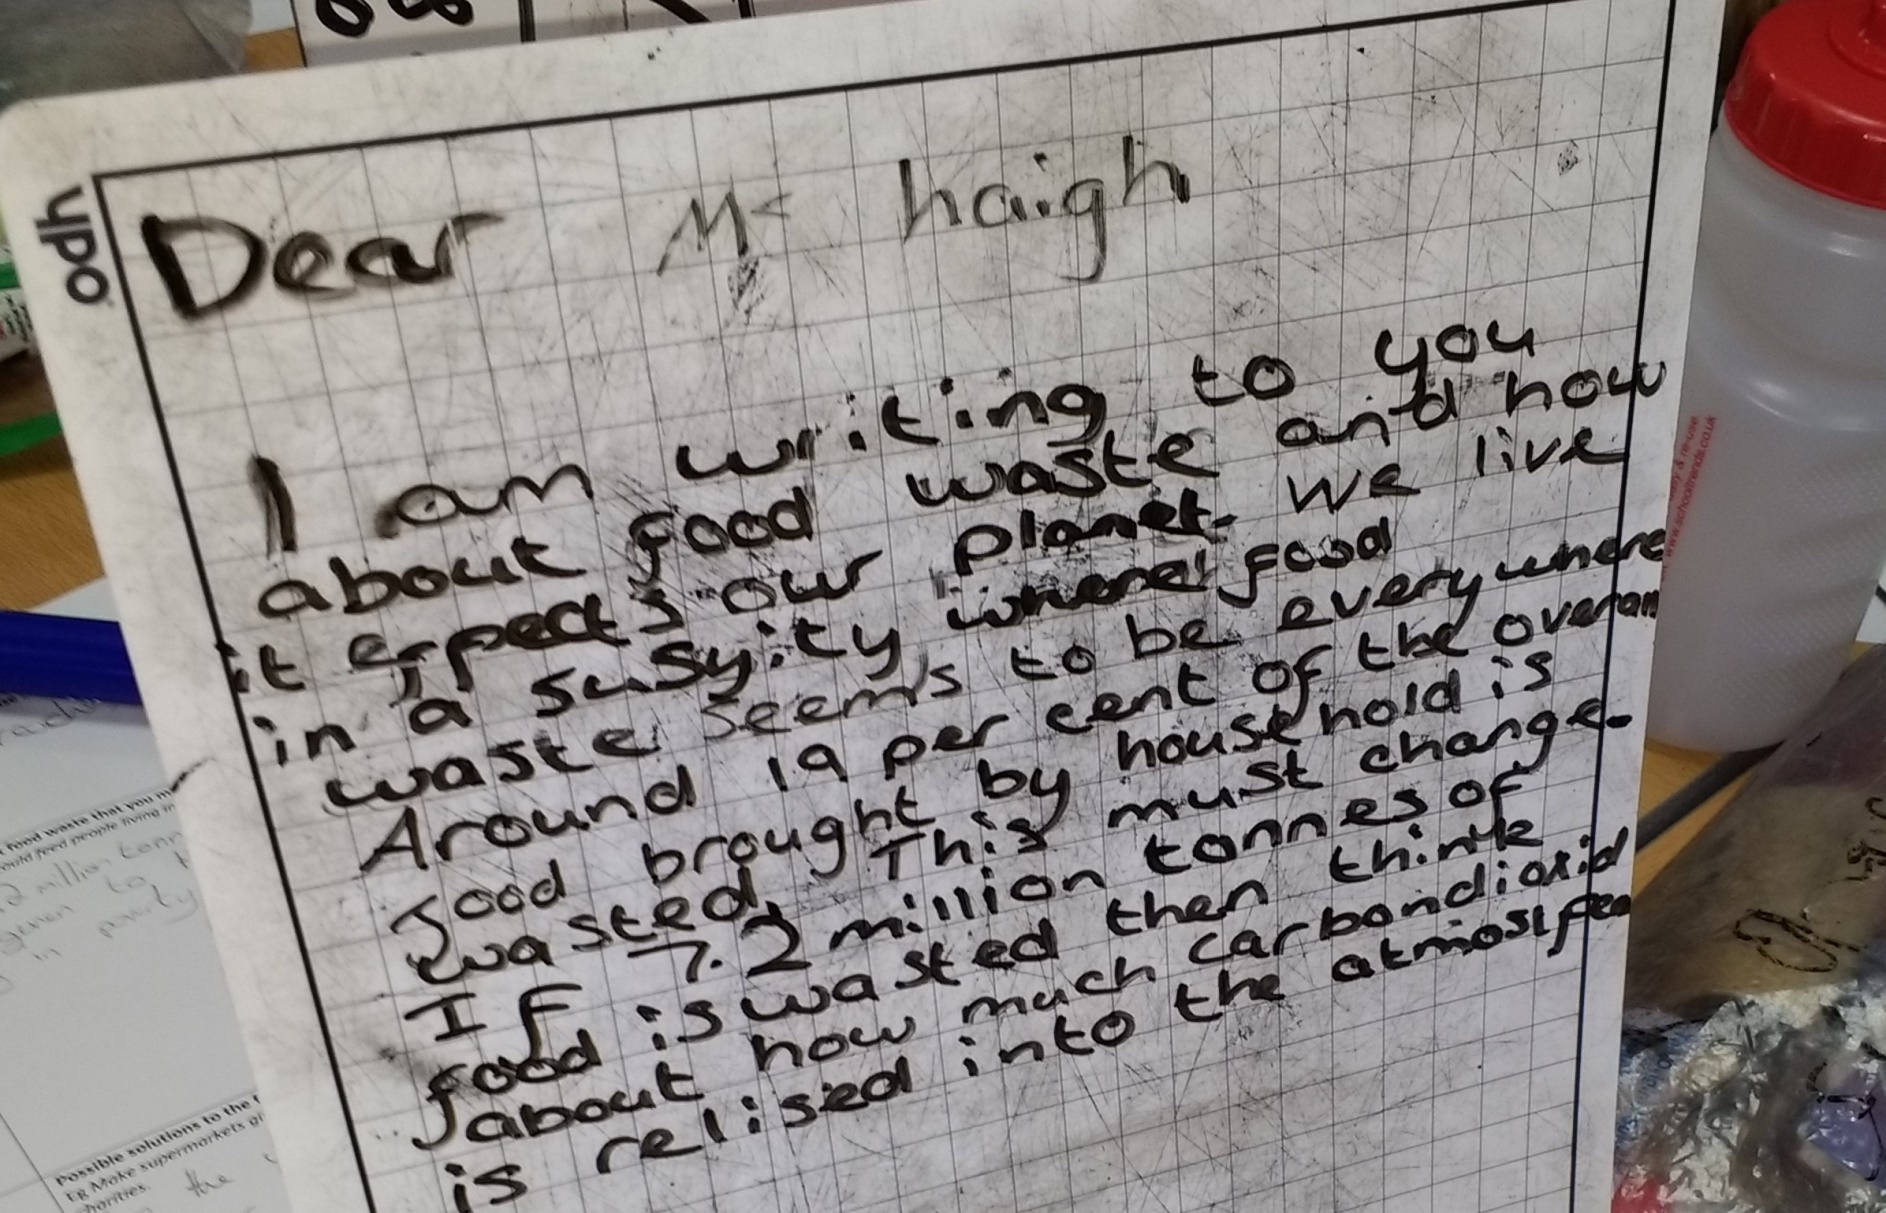 ypo
Dear Mr haigh
I am writing to you
about food waste and how
it erpects our planet. We live
in a susyity where food
waste seems to be everywhere
Around 19 per cent of the overall
food brought by household is
wasted. This must change.
If 7.2 million tonnes of
food is wasted then think
about how much carbondioxid
is relised into the atmosifer
food waste that you m
ould feed people living in
2 million tonn
given to
in
Possible solutions to the
Eg Make supermarkets gi
charities.
the
www.schooltrends.co.uk